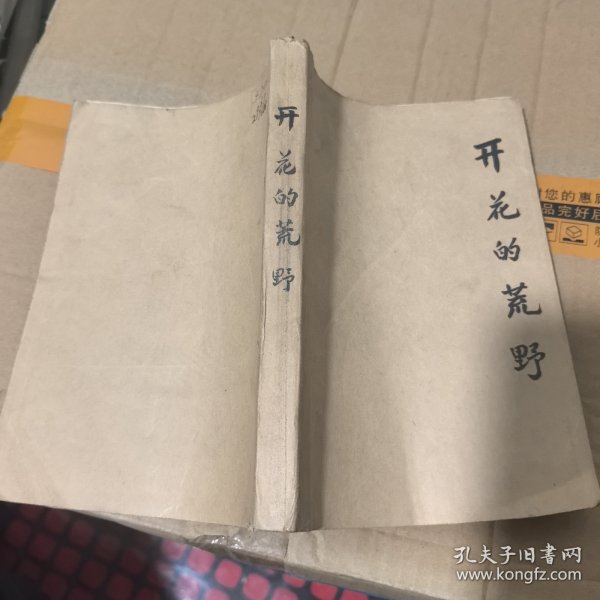 开花的荒野
开花的荒野
您的惠顾
品完好后
孔夫子旧书网
www.kongfz.com